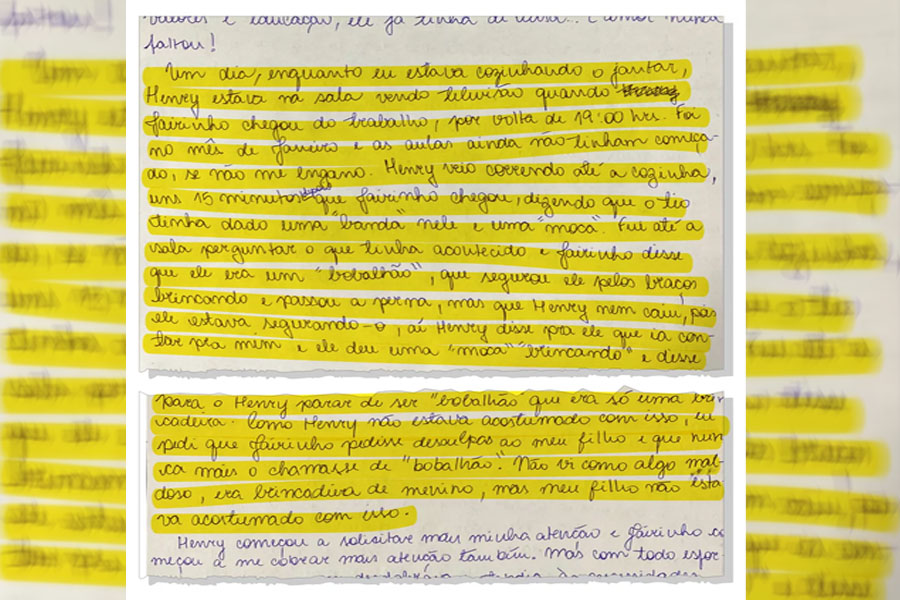 valores e educação, ele já tinha de
faltou!
Um dia, enquanto eu estava cozinhando o jantar,
Henry estava na sala vendo televisão quando
Jairinho chegou do trabalho, por volta de 19:00 hrs. Foi
no mês de janeiro e as aulas ainda não tinham começa-
do, se não me engano. Henry veio correndo até a cozinha,
uns 15 minutos que Jairinho chegou, dizendo que o tio
tinha dado uma "banda" nele e uma "moca". Fui até a
sala perguntar o que tinha acontecido e Jairinho disse
que ele era um "bobalhão", que segurou ele pelos braços
brincando e passou a perna, mas que Henry nem caiu, pois
ele estava segurando-o, aí Henry disse pra ele que ia con-
tar pra mim e ele deu uma "moca" "brincando" e disse
para o Henry parar de ser "bobalhão" que era só uma brin
cadeira. Como Henry não estava acostumado com isso, eu
pedi que Jairinho pedisse desculpas ao meu filho e que nun-
ca mais o chamasse de "bobalhão". Não vi como algo mal-
doso, era brincadeira de menino, mas meu filho não esta
va acostumado com isso.
Henry começou a solicitar mais minha atenção e Jairinho co
meçou a me cobrar mais atenção também. Mas com todo esfor-